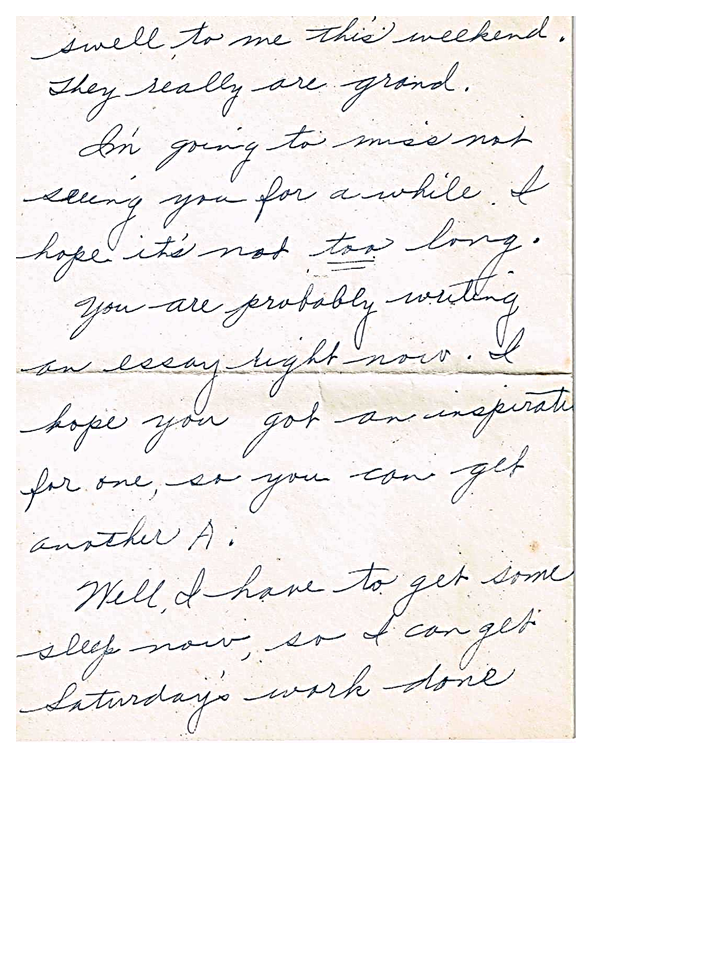 swell to me this weekend.
They really are grand.
I'm going to miss not
seeing you for a while. I
hope it's not too long.
You are probably writing
an essay right now. I
hope you got an inspirati
for one, so you can get
another A.
Well, I have to get some
sleep now, so I can get
Saturday's work done